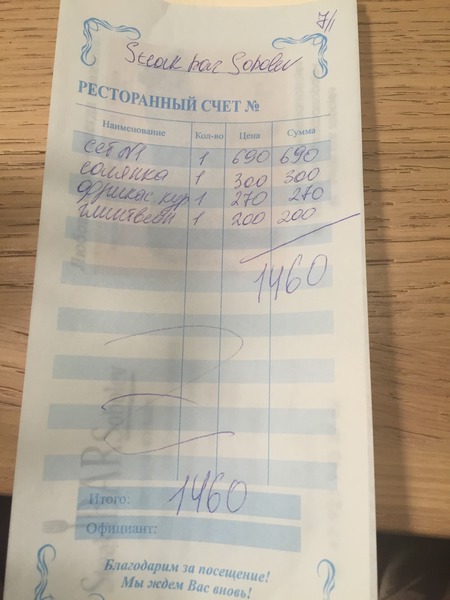 7/1
Steak bar Sobolev
РЕСТОРАННЫЙ СЧЕТ №
Наименование Кол-во Цена Сумма
сет №1 1 690 690
солянка 1 300 300
фрикас кур 1 270 270
глинтвейн 1 200 200
1460
Итого: 1460
Официант:
Благодарим за посещение!
Мы ждем Вас вновь!